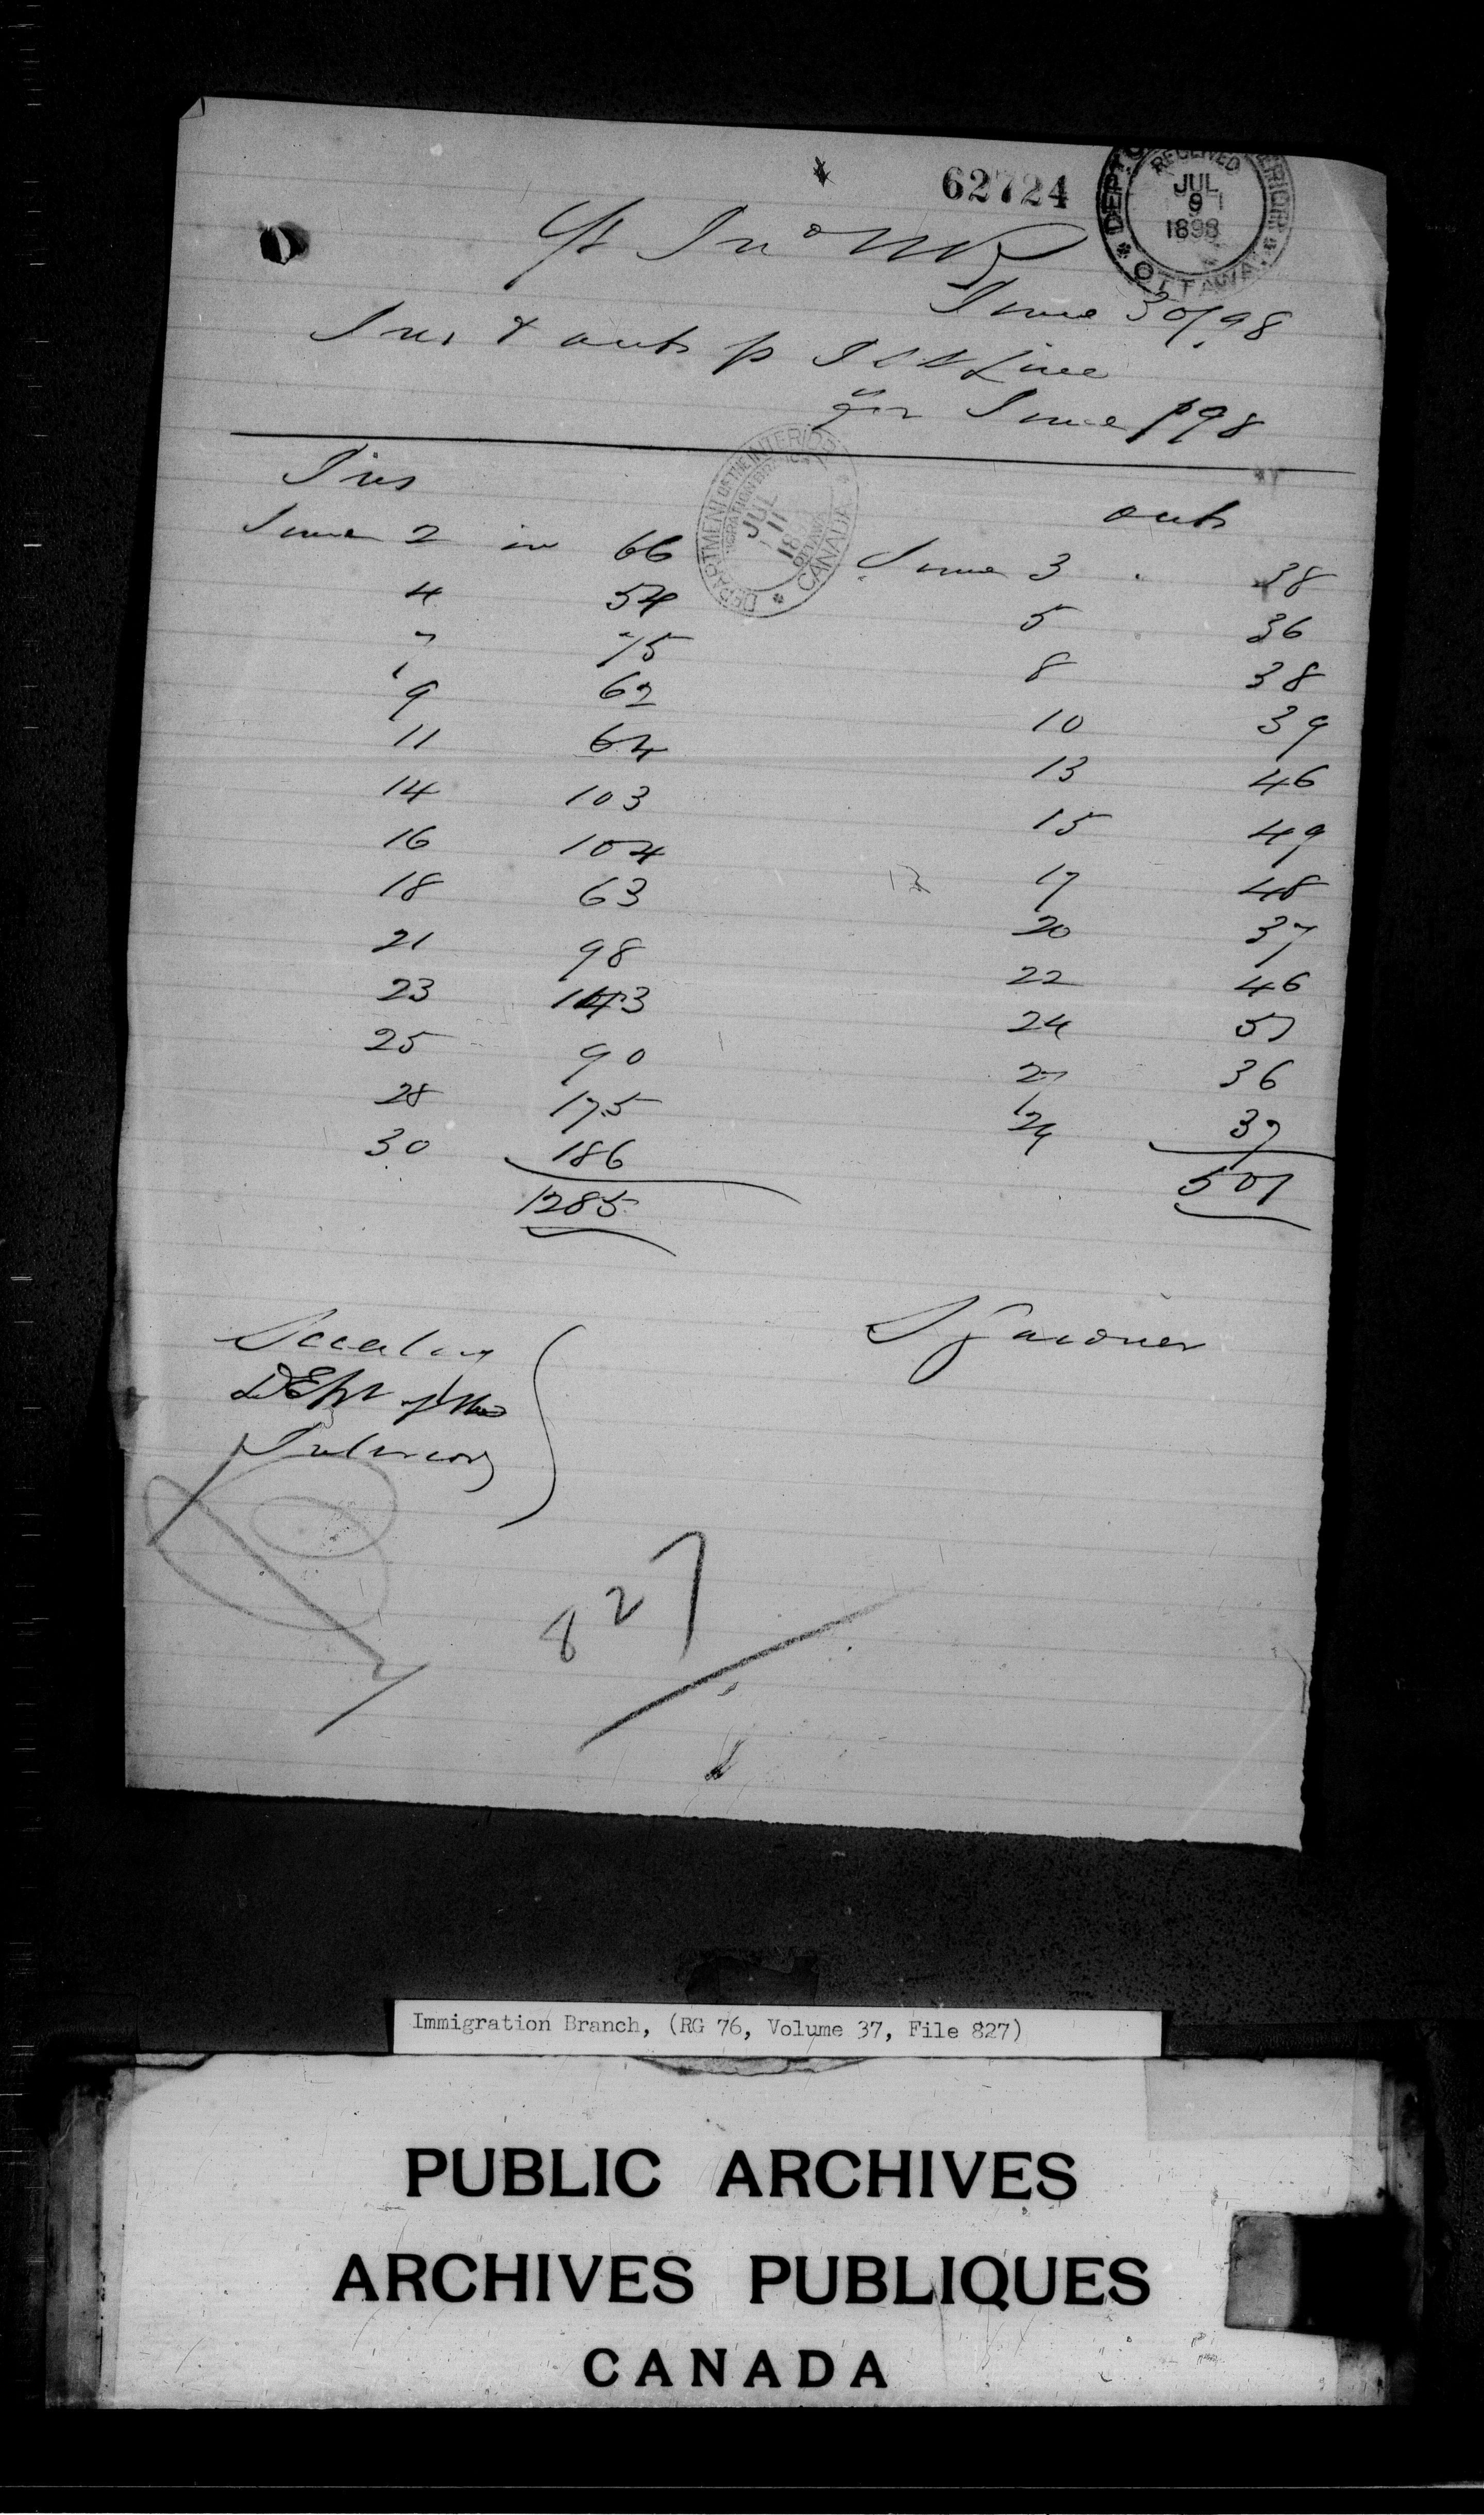 62724
DEPT OF INTERIOR
RECEIVED
JUL
9
1898
OTTAWA
St Jno NB
June 30/98
Ins & outs p ISS Line
for June /98
DEPARTMENT OF THE INTERIOR
IMMIGRATION BRANCH
JUL
11
189
OTTAWA
CANADA
Ins
outs
June 2 in 66 June 3 38
4 54 5 36
7 75 8 38
9 62 10 39
11 64 13 46
14 103 15 49
16 104 17 48
18 63 20 37
21 98 22 46
23 143 24 57
25 90 27 36
28 175 29 37
30 186 507
1285
S Gardner
Secretary
DEpt of the
Interior
827
Immigration Branch, (RG 76, Volume 37, File 827)
PUBLIC ARCHIVES
ARCHIVES PUBLIQUES
CANADA